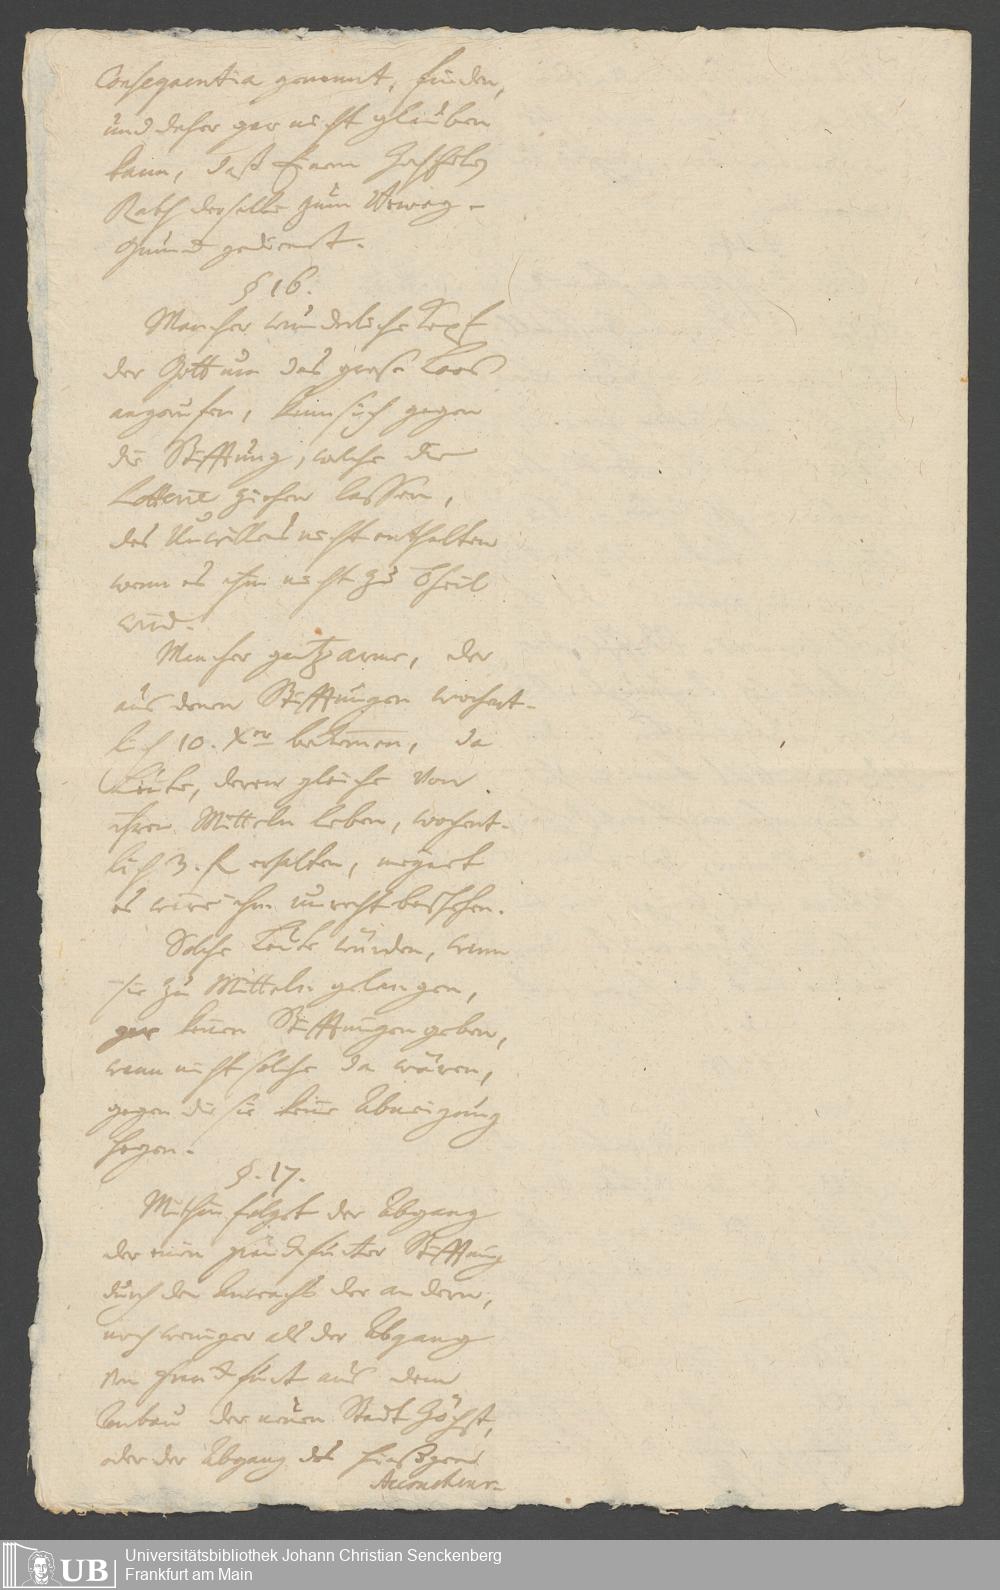 Consequentia genennt, finden,
und daher gar nicht glauben
kann, daß Einem Hochedlen
Rath derselbe zum Beweg-
Grund gedienet.
§ 16.
Mancher wunderliche Kopf
der Gott um das große Loos
angerufen, kann sich gegen
die Stifftung, welche die
Lotterie ziehen lassen,
des Unwillens nicht enthalten
wenn es ihm nicht zu Theil
wird.
Mancher Arme, der
aus denen Stifftungen wochent-
lich 10. Xer bekommen, da
Leute, deren gleiche von
ihren Mitteln leben, wochent-
lich 3. fl erhalten, meynet
es wäre ihm unrecht beschehen.
Solche Leute würden, wenn
sie zu Mitteln gelangen,
gar keinen Stifftungen geben,
wenn nicht solche da wären,
gegen die sie keine Abneigung
hegen.
§. 17.
Mithin folget der Abgang
der einen Stifftung
durch den der andern,
noch weniger als der Abgang
von Frankfurt aus dem
Anbau der neuen Stadt Höchst,
oder der Abgang des hießigen
Accoucheur-
Universitätsbibliothek Johann Christian Senckenberg
Frankfurt am Main
UB